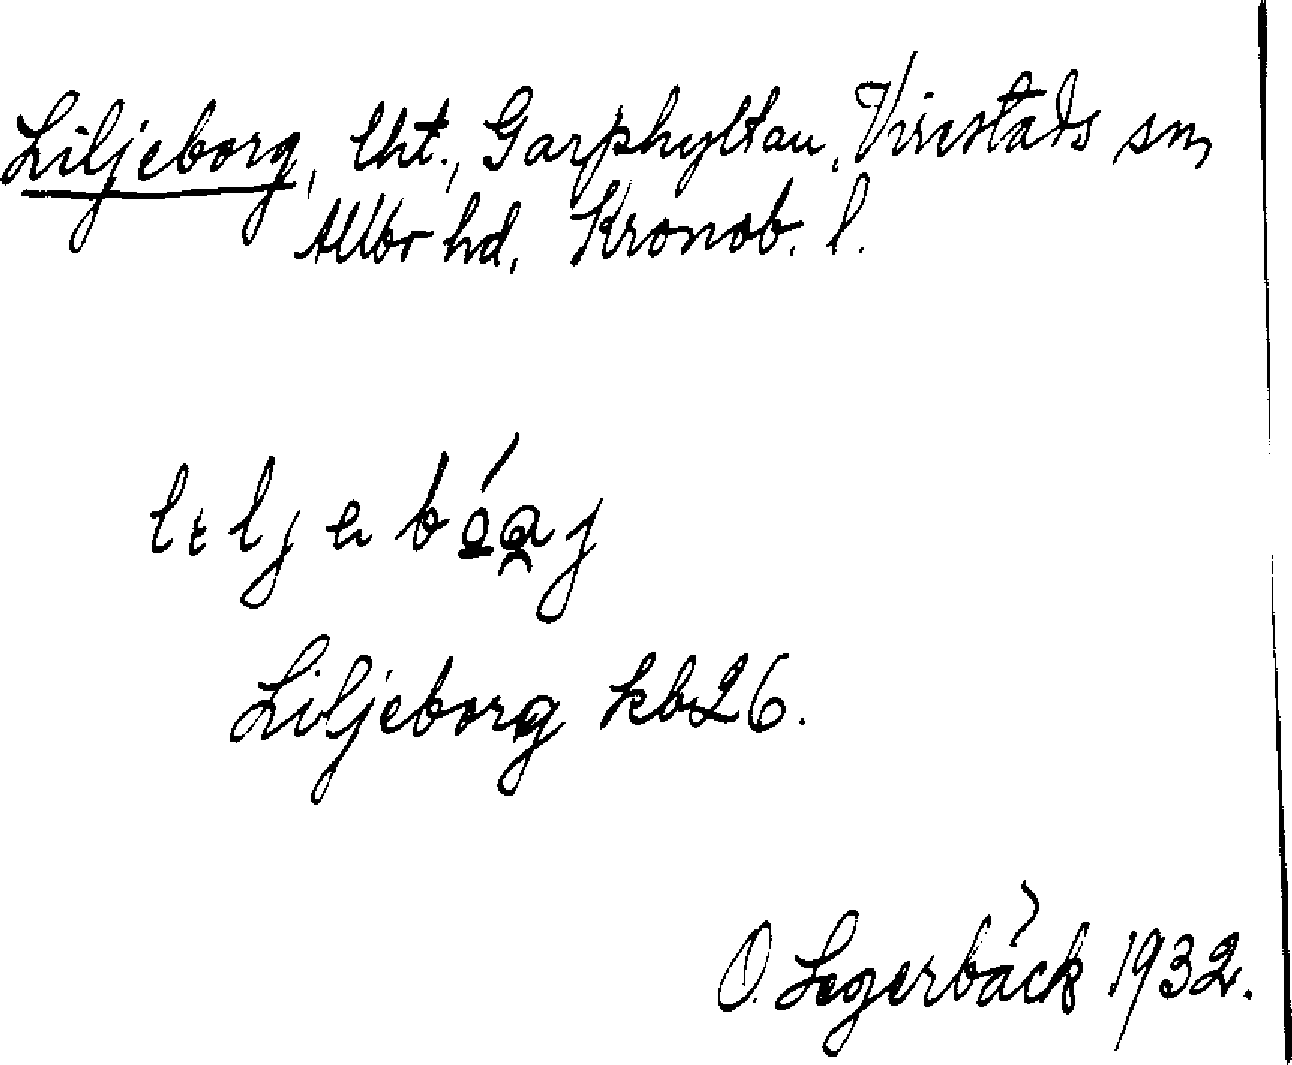 Liljeborg, lht., Garphyltan, Virestads sn,
Allbo hd, Kronob. l.
Liljeborg kb26.
O. Segerbäck 1932.